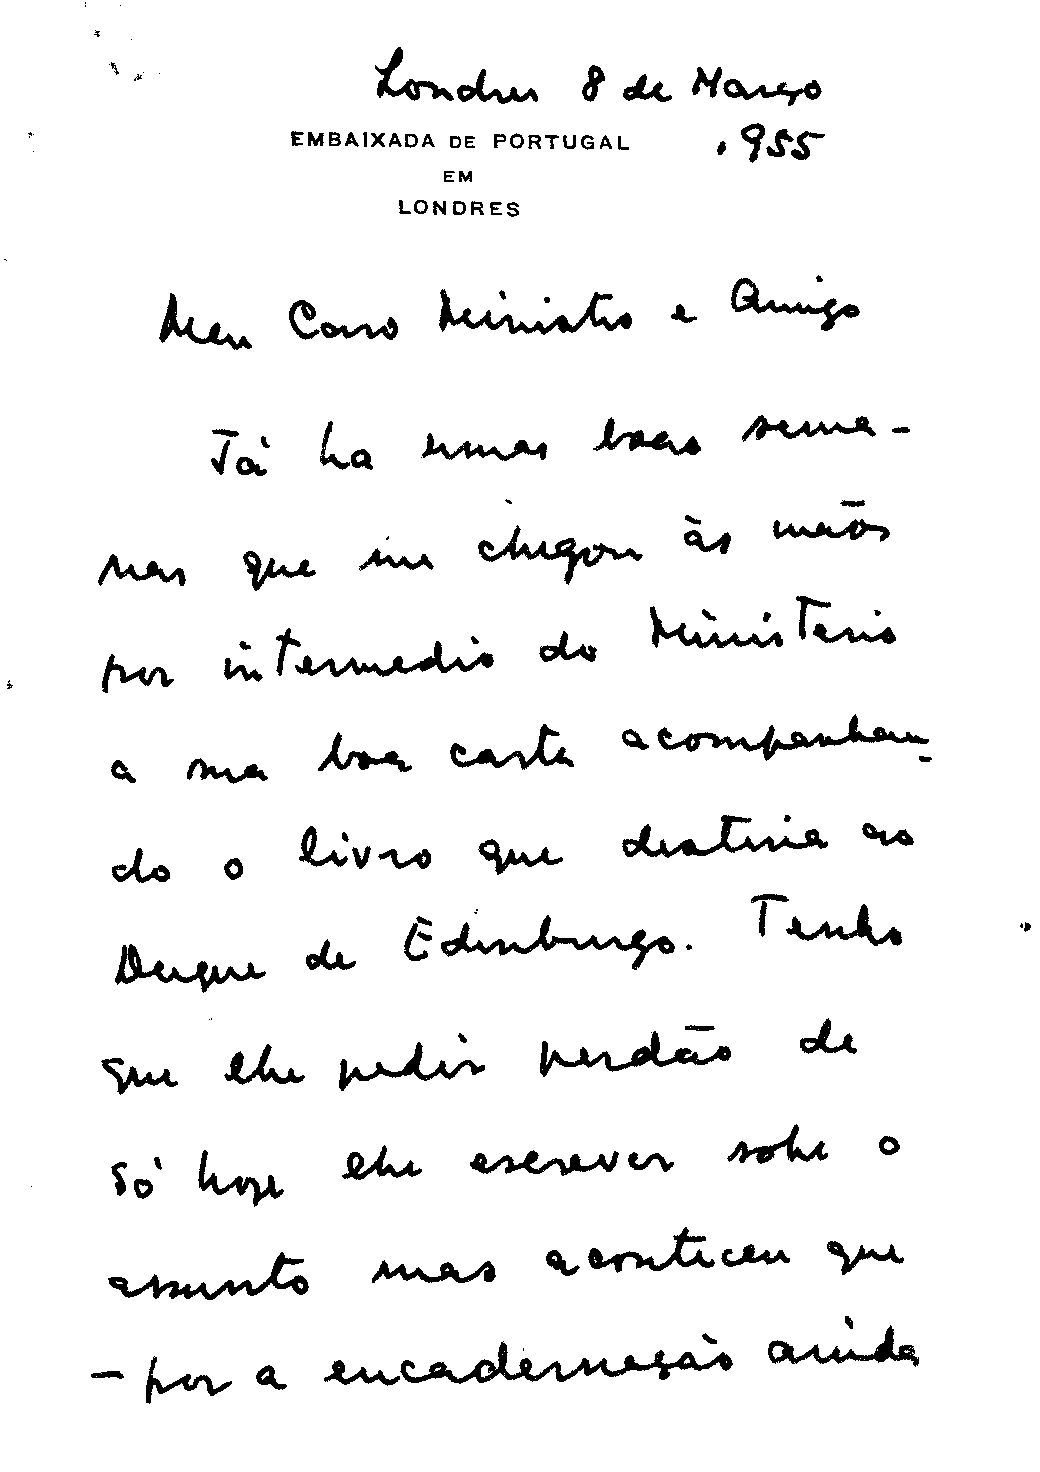 Londres 8 de Março
EMBAIXADA DE PORTUGAL
.955
EM
LONDRES
Meu Caro Ministro e Amigo
Já ha umas boas sema-
nas que me chegou às maõs
por intermedio do Ministerio
a sua boa carta acompanhan-
do o livro que destina ao
Duque de Edinburgo. Tenho
que lhe pedir perdão de
só hoje lhe escrever sobre o
assunto mas aconteceu que
- por a encadernação ainda